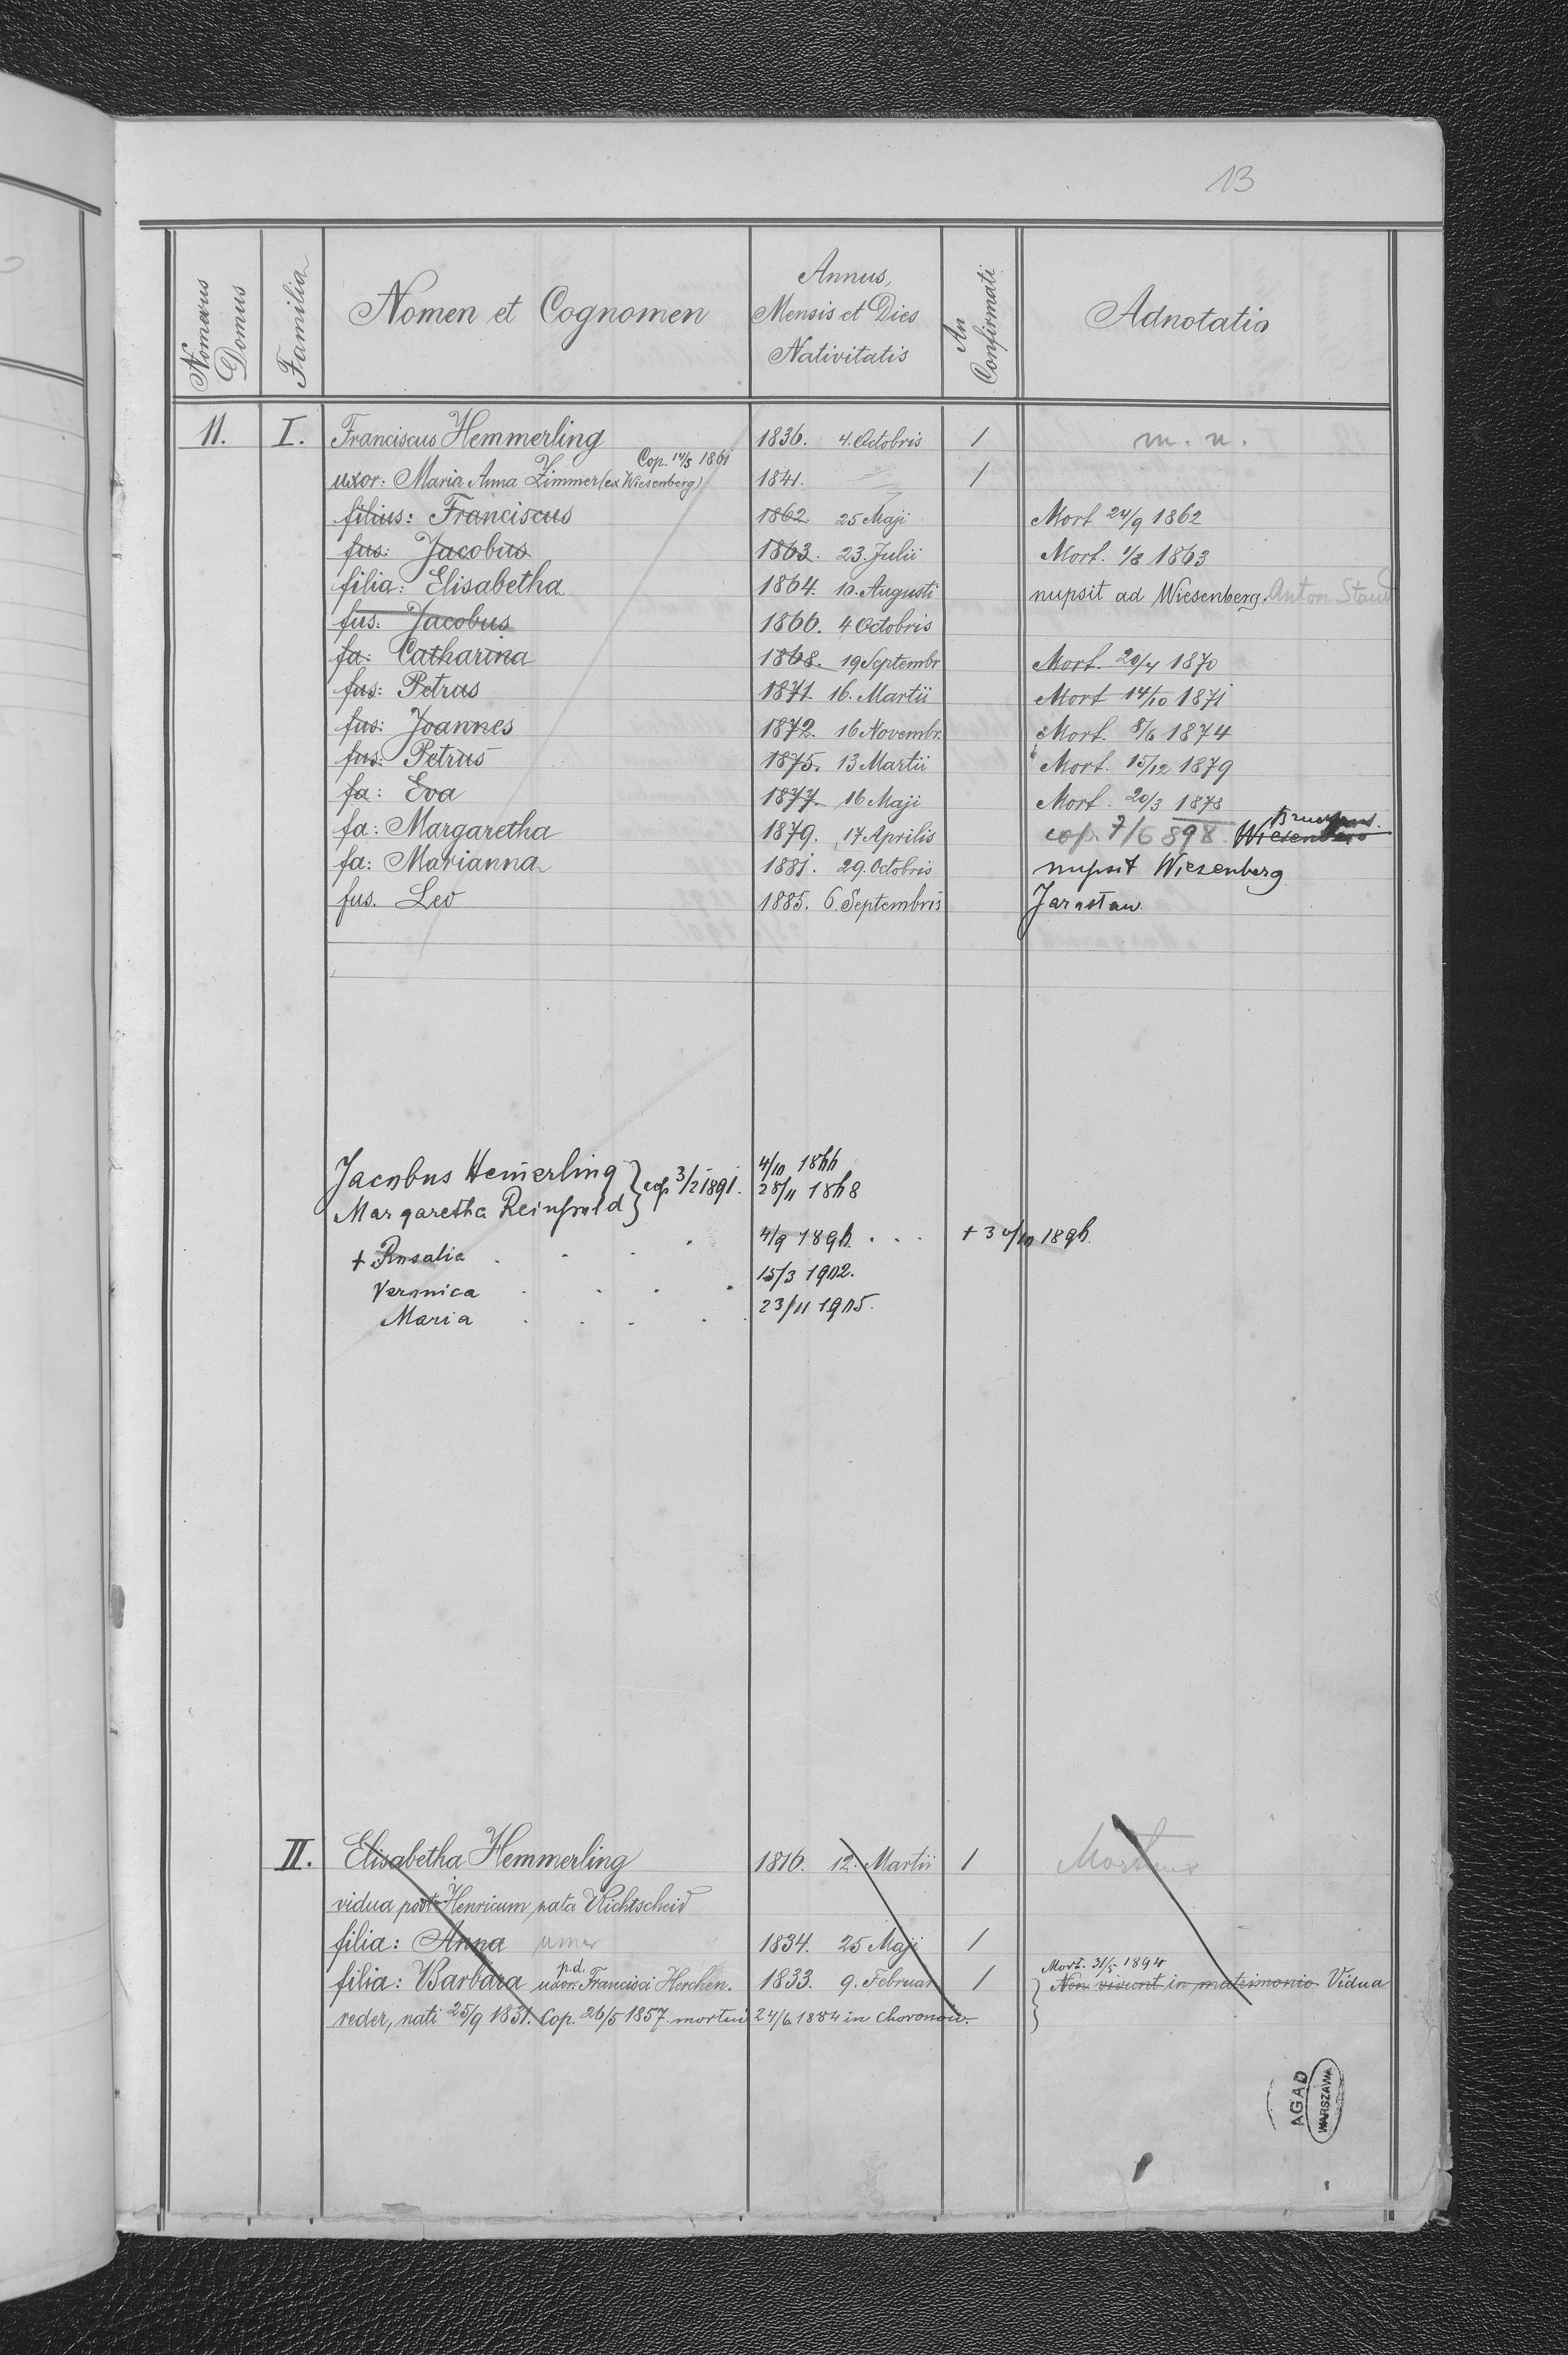 13
Nomerus Domus
Familia
Nomen et Cognomen
Annus, Mensis et Dies Nativitatis
An Confirmati
Adnotatio
11. I. Franciscus Hemmerling 1836. 4. Octobris 1 m. n.
Cop. 14/5 1861
uxor: Maria Anna Zimmer (ex Wiesenberg) 1841. 1
filius: Franciscus 1862. 25 Maji Mort 24/9 1862
fus: Jacobus 1863. 23. Julii Mort. 1/8 1863
filia: Elisabetha 1864. 10. Augusti nupsit ad Wiesenberg. Anton
fus: Jacobus 1866. 4 Octobris
fa: Catharina 1868. 19 Septembr Mort. 20/4 1870
fus: Petrus 1871. 16. Martii Mort 14/10 1871
fus: Joannes 1872. 16 Novembr. Mort. 8/6 1874
fus: Petrus 1875. 13 Martii Mort. 15/12 1879
fa: Eva 1877. 16 Maji Mort. 20/3 1878
fa: Margaretha 1879. 17 Aprilis cop. 7/6 898 Wiesenberg
fa: Marianna 1881. 29. Octobris nupsit Wiesenberg
fus. Leo 1885. 6. Septembris Jarosław
Jacobus Hem̄erling 4/10 1866
} cop 3/2 1891.
Margaretha Reinpold 28/11 1868
+ Rosalia . . . . 4/9 1896 . . . + 30/10 1896.
Veronica . . . . 15/3 1902.
Maria . . . . 23/11 1905.
II. Elisabetha Hemmerling 1816. 12. Martii 1
vidua post Henricum nata Richtscheid
filia: Anna 1834. 25 Maji 1
Mort. 31/5 1894
filia: Barbara uxor p.d. Francisci Herchen. 1833. 9. Februar 1 } Non vivunt in matrimonio Vidua
reder, nati 25/9 1831. Cop. 26/5 1857. mortui 24/6 1884 in Choronów.
AGAD
WARSZAWA